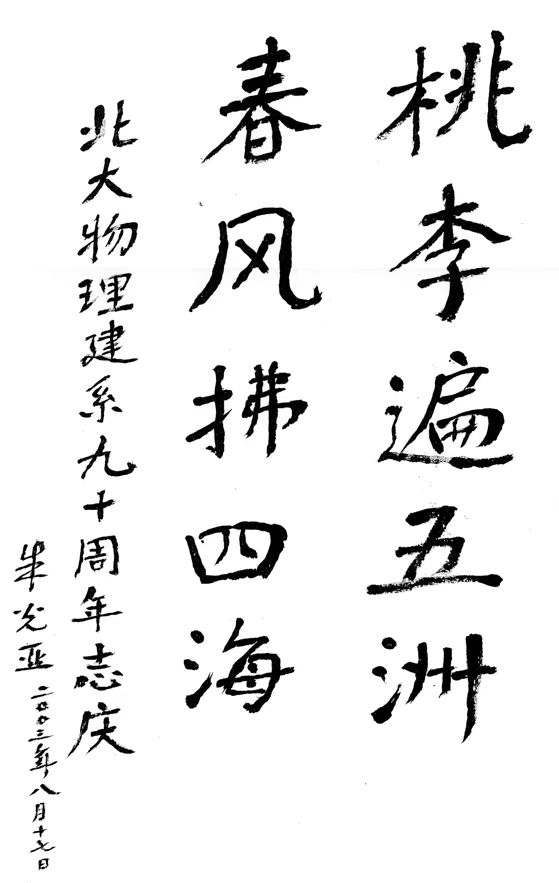 桃李遍五洲
春风拂四海
北大物理建系九十周年志庆
朱光亚 二〇〇三年八月十七日